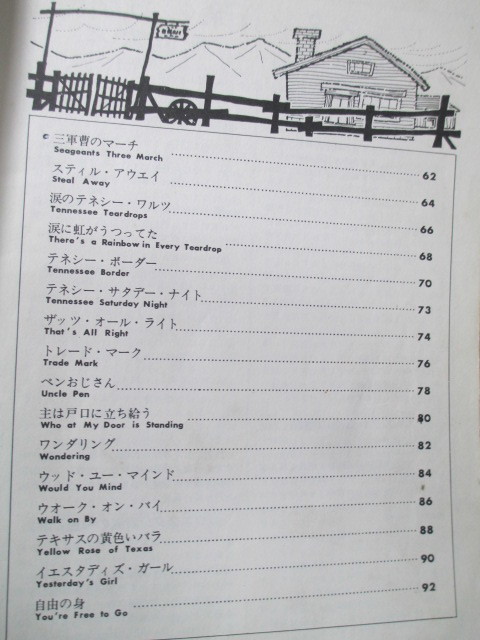 三軍曹のマーチ 62
Seageants Three March
スティル・アウエイ 64
Steal Away
涙のテネシー・ワルツ 66
Tennessee Teardrops
涙に虹がうつってた 68
There's a Rainbow in Every Teardrop
テネシー・ボーダー 70
Tennessee Border
テネシー・サタデー・ナイト 73
Tennessee Saturday Night
ザッツ・オール・ライト 74
That's All Right
トレード・マーク 76
Trade Mark
ペンおじさん 78
Uncle Pen
主は戸口に立ち給う 80
Who at My Door is Standing
ワンダリング 82
Wondering
ウッド・ユー・マインド 84
Would You Mind
ウオーク・オン・バイ 86
Walk on By
テキサスの黄色いバラ 88
Yellow Rose of Texas
イエスタディズ・ガール 90
Yesterday's Girl
自由の身 92
You're Free to Go